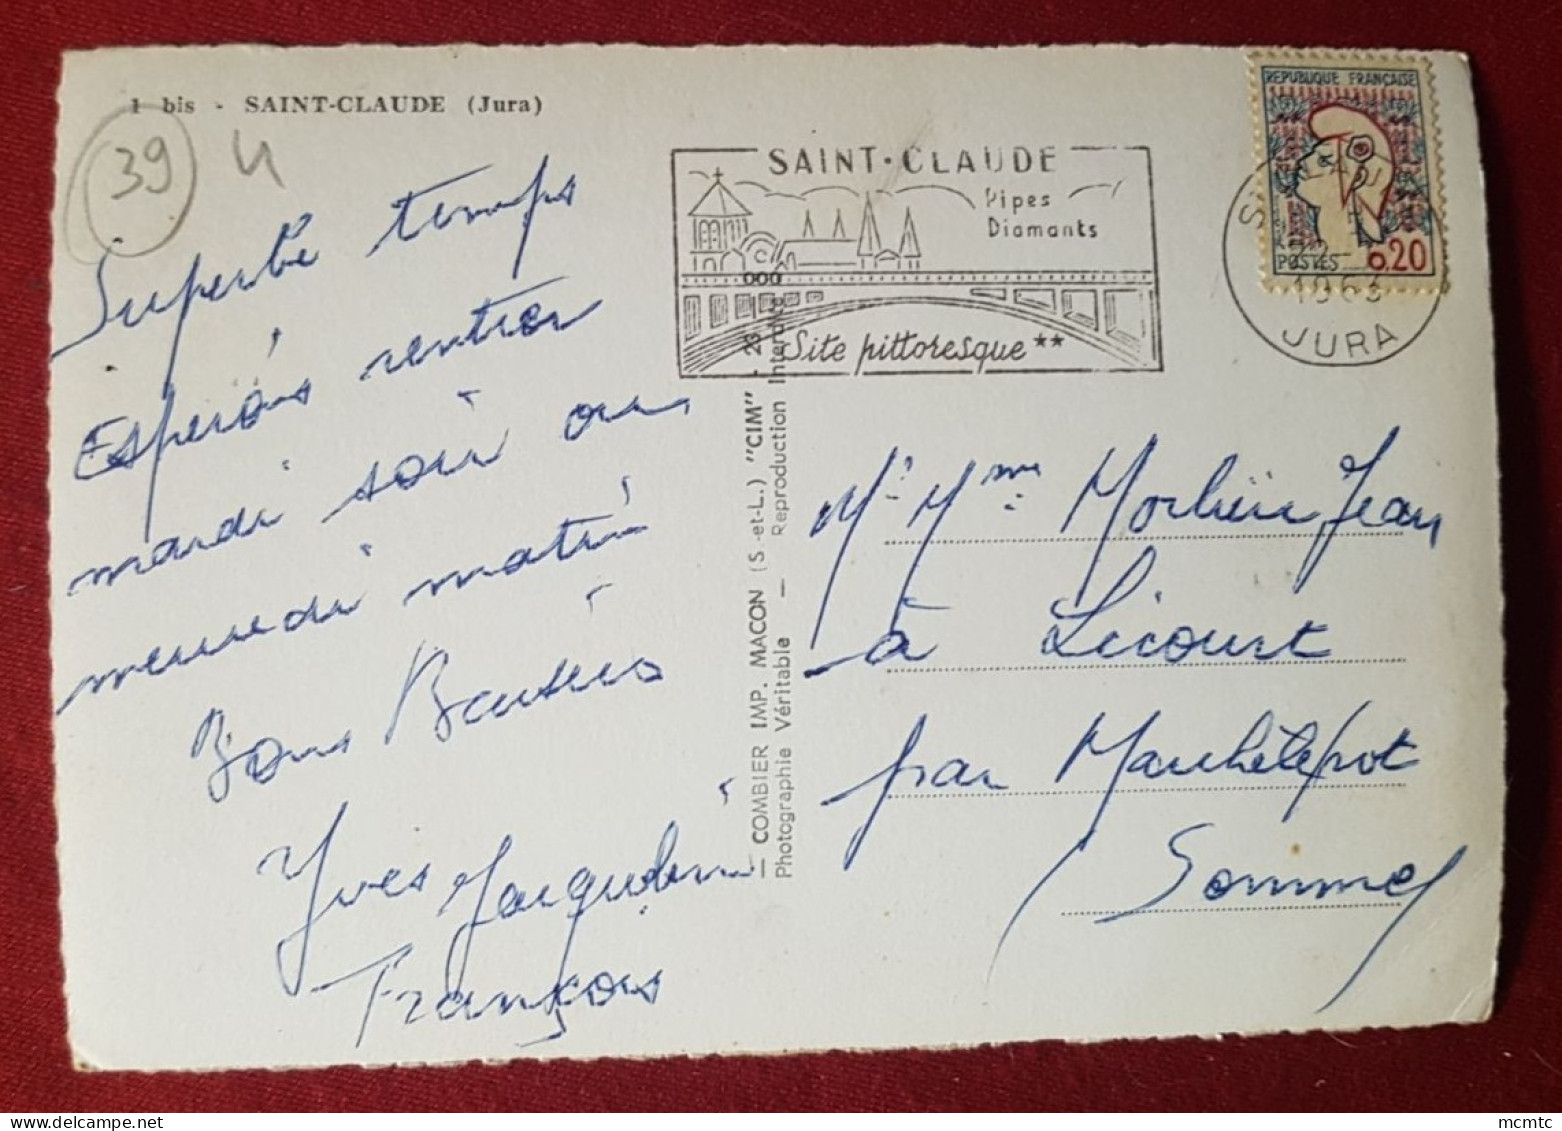 1 bis - SAINT-CLAUDE (Jura)
39
Superbe temps
Espérons rentrer
mardi soir ou
mercredi matin
Bons Baisers
Yves Jacqueline
François
SAINT·CLAUDE
Pipes
Diamants
Site pittoresque **
REPUBLIQUE FRANÇAISE
POSTES 0.20
1963
JURA
— COMBIER IMP. MACON (S.-et-L.) "CIM"
Photographie Véritable — Reproduction Interdite
Mr Mme Morlière Jean
à Licourt
par Marchélepot
Somme
mcmtc